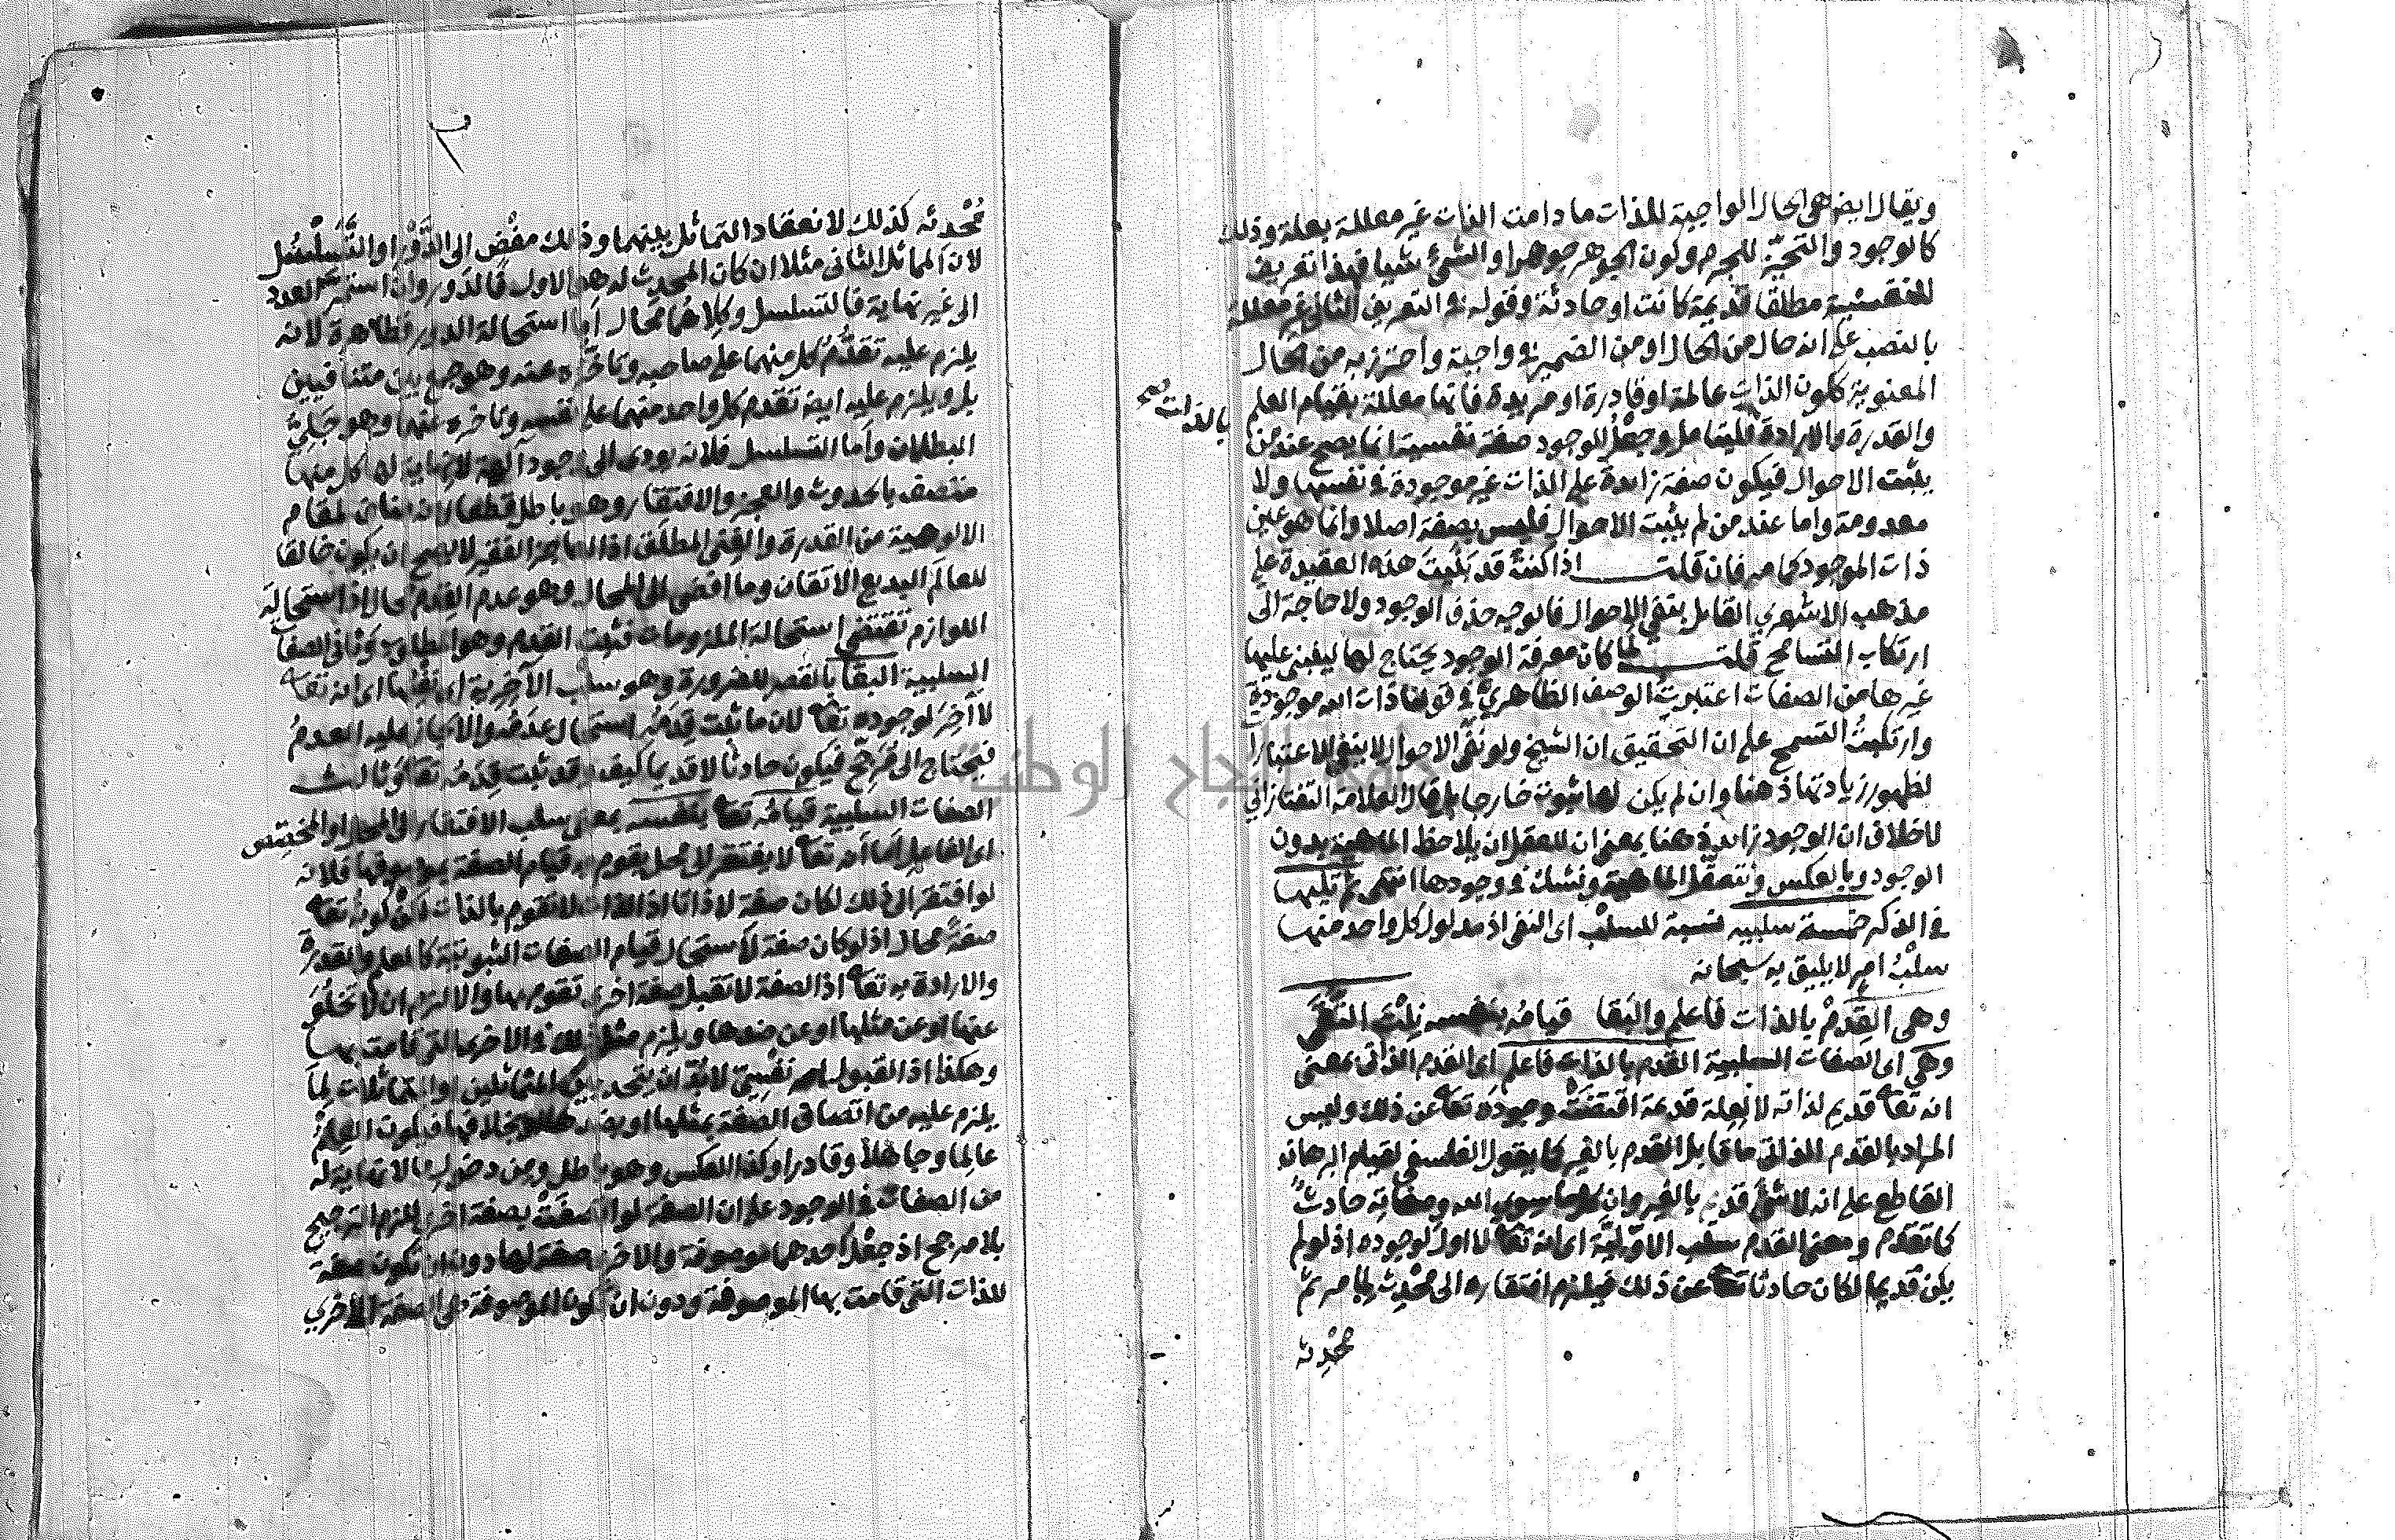 ويقال ايضا هي الحال الواجبة للذات ما دامت الذات غير معللة بعلة وذلك
كالوجود والتحيّز للجرم وكون الجوهر جوهرا والشيء شيئا فهذا تعريف
للنفسية مطلقا قديمة كانت او حادثة وقوله في التعريف الثاني غير معللة
بالنصب على انه حال من الحال او من الضمير في واجبة واحترز به من الحال
المعنوية ككون الذات عالمة او قادرة او مريدة فانها معللة بقيام العلم
والقدرة والارادة فليتامل وجعل الوجود صفة نفسية انما يصح عند من
بالذات صح
يثبت الاحوال فيكون صفة زائدة على الذات غير موجودة في نفسها ولا
معدومة واما عند من لم يثبت الاحوال فليس بصفة اصلا وانما هو عين
ذات الموجود كما مر فان قلت اذا كنت قد بنيت هذه العقيدة على
مذهب الاشعري القايل بنفي الاحوال فالوجه حذف الوجود ولا حاجة الى
ارتكاب التسامح قلت لما كان معرفة الوجود يحتاج لها ليبنى عليها
غيرها من الصفات اعتبرت الوصف الظاهريّ في قولنا ذات الله موجودة
وارتكبتُ التسمح على ان التحقيق ان الشيخ ولو نفى الاحوال لا ينفي الاعتبارا
لظهور زيادتها ذهنا وان لم يكن لها ثبوت خارجا قال العلامة التفتازاني
لا خلاف ان الوجود زائد ذهنا بمعنى ان للعقل ان يلاحظ الماهية بدون
الوجود وبالعكس ونتعقل الماهية ونشك في وجودها انتهى ثم تليها
في الذكر خمسة سلبيه نسبة للسلب اى النفي اذ مدلول كل واحد منها
سلبُ امرٍ لا يليق به سبحانه
وهي القِدَمُ بالذات فاعلم والبقا قيامُه بنفسه نِلْتَ التُّقَى
وهي اى الصفات السلبية القدم بالذات فاعلم اى القدم الذاتي بمعنى
انه تعا قديم لذاته لا لعلة قديمة اقتضت وجوده تعا عن ذلك وليس
المراد بالقدم الذاتي ما قابل القدم بالغير كما يقول الفلسفي لقيام البرهان
القاطع على انه لا شئ قديم بالغير وان ما سوى الله وصفاته حادثٌ
كما تقدم ومعنى القدم سلب الاوّليّة اى انه تعا لا اول لوجوده اذ لو لم
يكن قديما لكان حادثا تعا عن ذلك فيلزم افتقاره الى محْدِث لما مر ثم
محْدِثه
٣
مُحْدثه كذلك لانعقاد التماثل بينهما وذلك مفْضٍ الى الدَّوْرِ او التَّسَلْسُل
لان المماثل الثاني مثلا ان كان المحدِث له هو الاول فالدور وان استمر العدد
الى غير نهاية فالتسلسل وكلاهُما محال اما استحالة الدور فظاهرة لانه
يلزم عليه تقدُّمُ كل منهما على صاحبه وتاخّره عنه وهو جمع بين متنافيين
بل ويلزم عليه ايضا تقدم كل واحد منهما على نفسه وتاخره عنها وهو جَلِيُّ
البطلان وأما التسلسل فلانه يودى الى وجود آلهة لا نهاية لها كل منها
متصف بالحدوث والعجز والافتقار وهو باطل قطعا لانه مناف لمقام
الالوهية من القدرة والغنى المطلق اذ العاجز الفقير لا يصح ان يكون خالقا
للعالَم البديع الاتقان وما افضى الى المحال وهو عدم القِدَم محال اذ استحالة
اللوازم تقتضى استحالة الملزومات فثبت القدم وهو المطلوب وثاني الصفا
السلبية البقا بالقصر للضرورة وهو سلب الآخِرِية اى نفيُها اى انه تعا
لا آخِرَ لوجوده تعا لان ما ثبت قِدَمُه استحال عدَمُه والا لجاز عليه العدمُ
فيحتاج الى مُرَجّح فيكون حادثا لا قديما كيف وقد ثبت قِدَمُه تعا وثالث
الصفات السلبية قيامُه تعا بنفسه بمعنى سلب الافتقار الى المحل او المخصِّص
اى الفاعل اما انه تعا لا يفتقر الى محل يقوم به قيام الصفة بموصوفها فلانه
لو افتقر الى ذلك لكان صفة لا ذاتا اذ الذات لا تقوم بالذات لكن كونُه تعا
صفةً محال اذ لو كان صفة لاستحال قيام الصفات الثبوتية كالعلم والقدرة
والارادة به تعا اذ الصفة لا تقبل صفة اخرى تقوم بها والا لزم ان لا تخلُوَ
عنها او عن مثلها او عن ضدها ويلزم مثل ذلك في الاخرى التى قامت بها
وهكذا اذ القبول امر نفسِيّ لا بد ان يتحد بين المتماثلين او المتماثلات لِمَا
يلزم عليه من اتصاف الصفة بمثلها او بضدها او بخلافها فيكون العلمُ
عالِما وجاهلا وقادرا وكذا العكس وهو باطل ومِن دخول ما لا نهاية له
من الصفات في الوجود على ان الصفة لو اتصفَتْ بصفة اخرى للزم الترجيح
بلا مرجح اذ جعْل احدهما موصوفة والاخرى صفة لها دون ان تكون صفة
للذات التي قامت بها الموصوفة ودون ان تكون الموصوفة هى الصفة الاخري